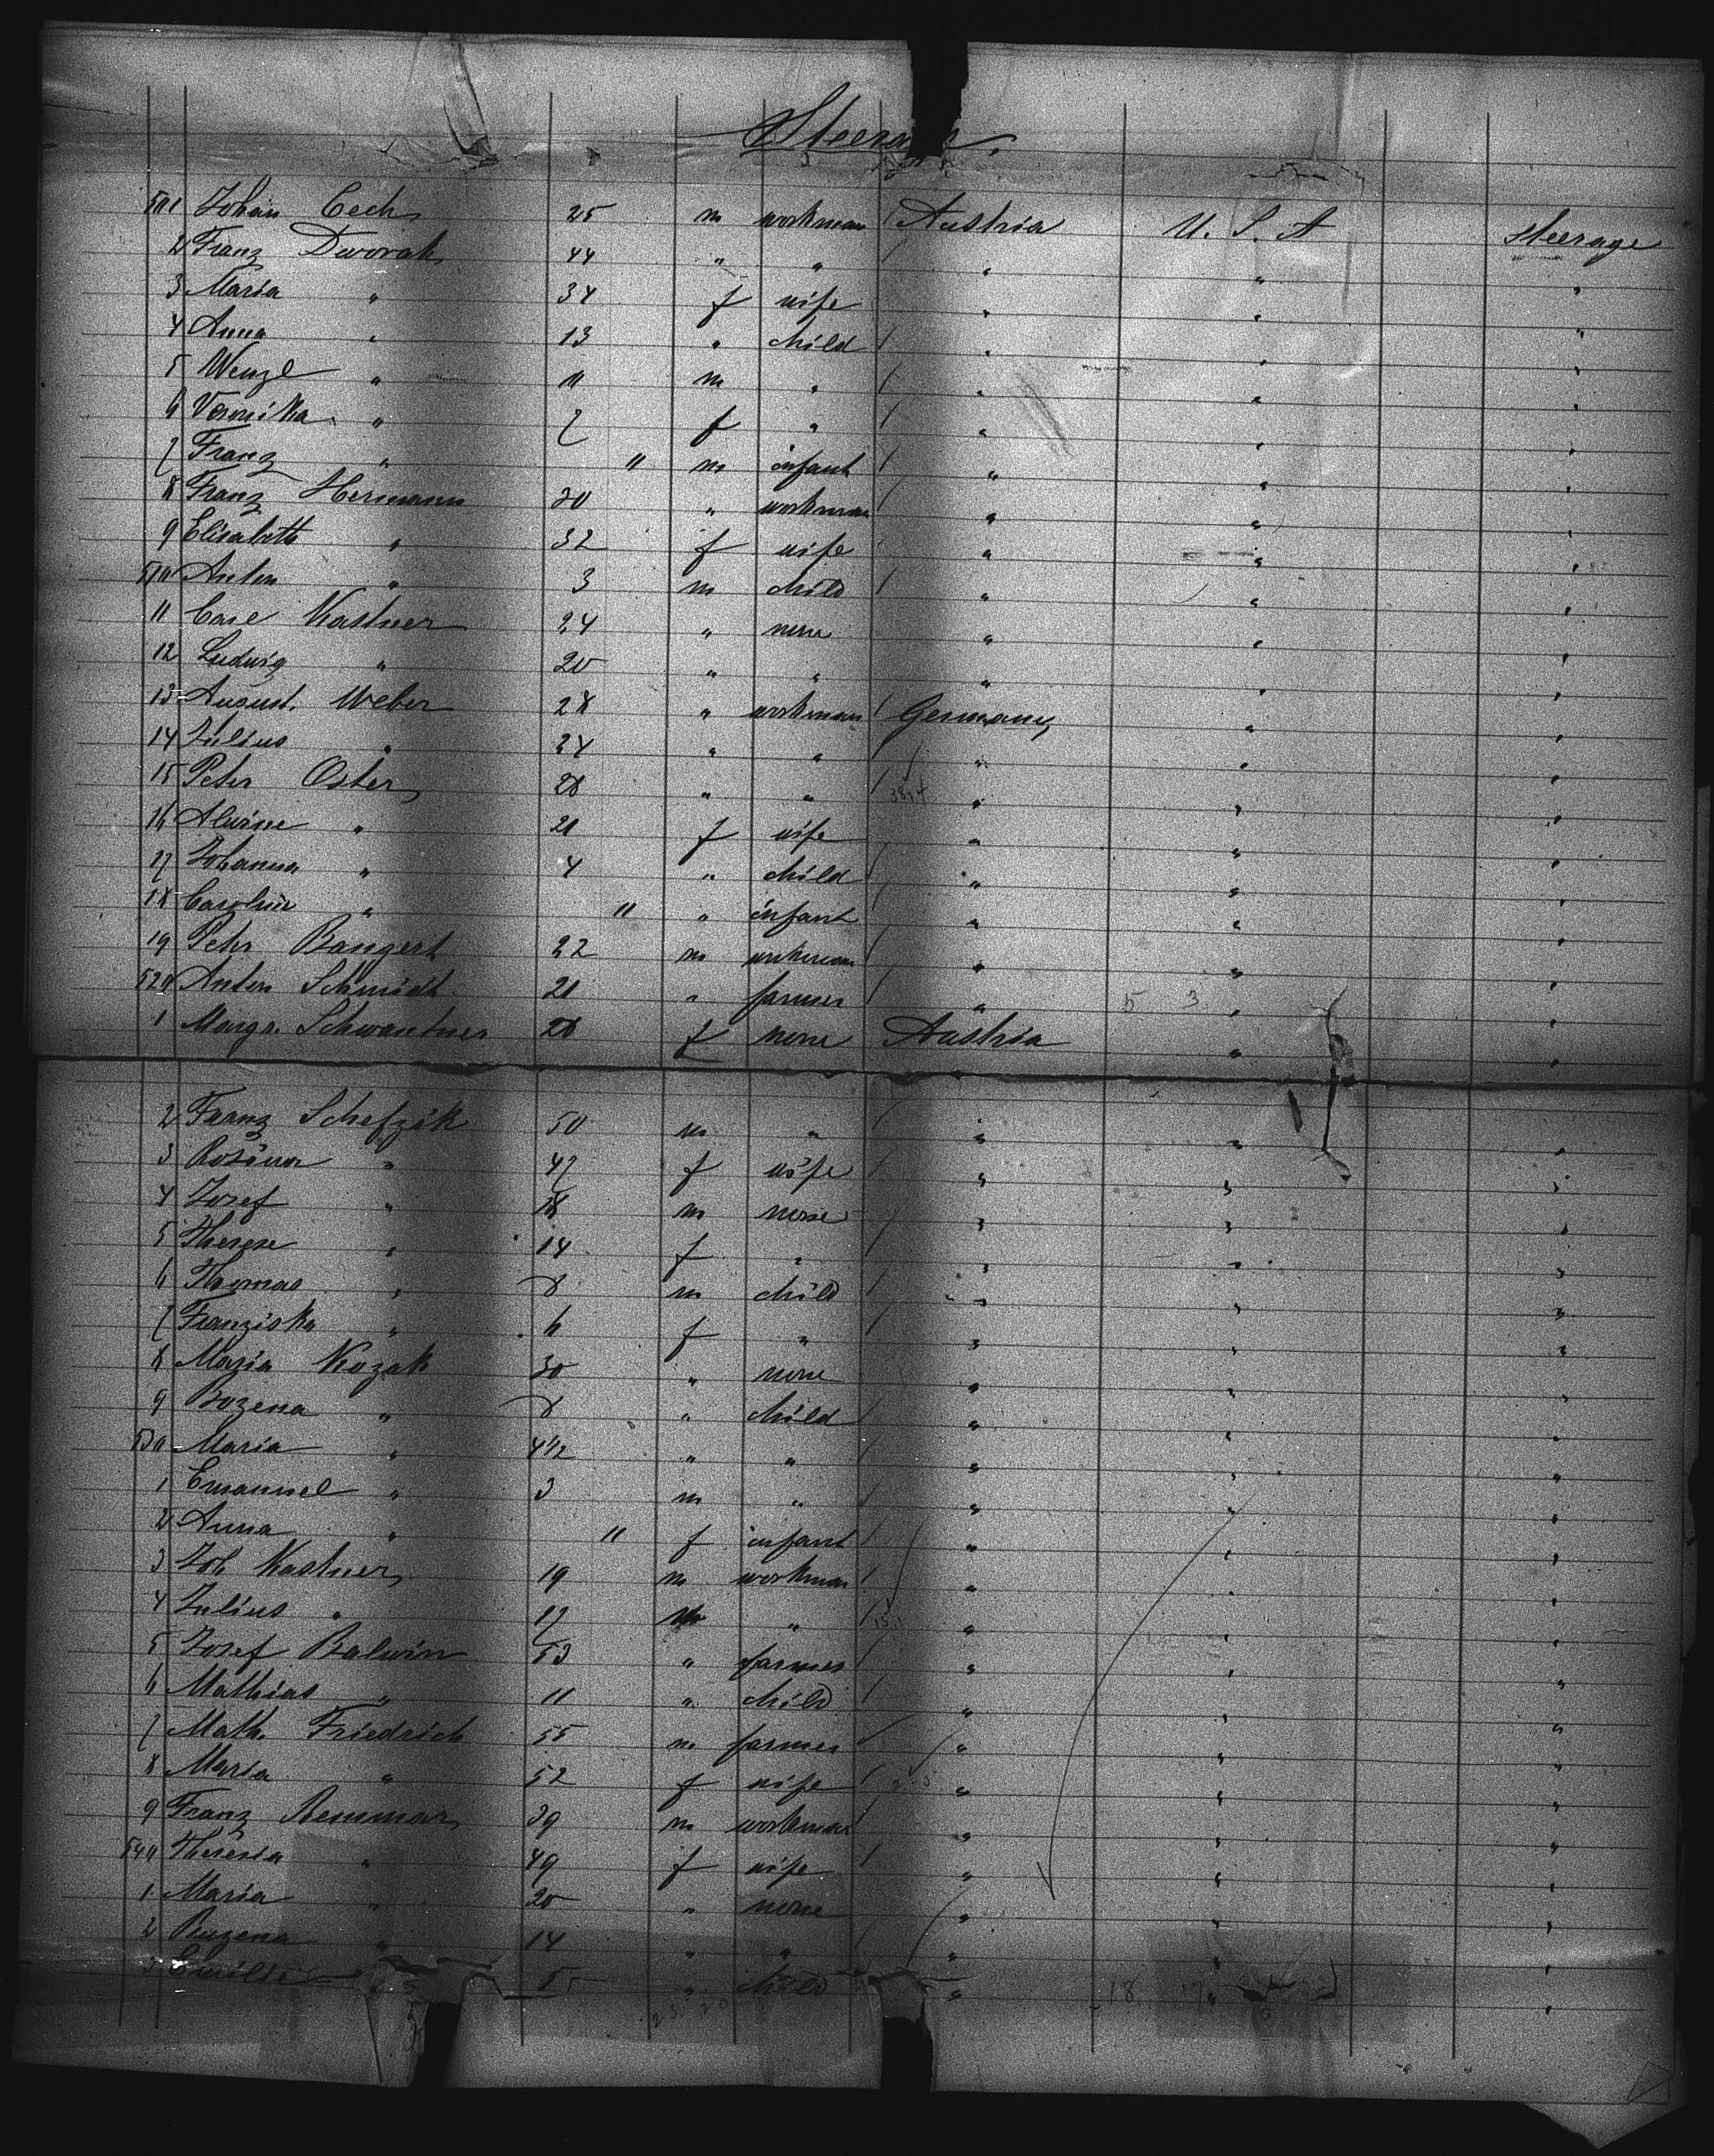 Steerage.
501 Johan Cech 25 m workman / Austria U. S. A steerage
2 Franz Dworak 44 " " / " " "
3 Maria " 34 f wife " " "
4 Anna " 13 " child / " " "
5 Wenzl " 11 m " / " " "
6 Veronika " 7 f " / " " "
7 Franz " 11 m infant / " " "
8 Franz Hermann 30 " workman / " " "
9 Elisabeth " 32 f wife " " "
510 Anton " 3 m child / " " "
11 Carl Kastner 24 " none " " "
12 Ludwig " 20 " " " " "
13 August Weber 28 " workman / Germany " "
14 Julius " 24 " " " " "
15 Peter Oster 28 " " / " " "
16 Alwine " 21 f wife " " "
17 Johanna " 4 " child / " " "
18 Carolin " 11 " infant / " " "
19 Peter Bangert 22 m workman / " " "
520 Anton Schmidt 21 " farmer / " 5 3 " "
1 Margr. Schwantner 28 f none Austria " "
2 Franz Schefzik 50 m " / " " "
3 Rosina " 47 f wife / " " "
4 Josef " 18 m none / " " "
5 Therese " 14 f " / " " "
6 Thomas " 8 m child / " " "
7 Franziska " 6 f " / " " "
8 Maria Kozak 30 " none " " "
9 Bozena " 8 " child / " " "
530 Maria " 4 1/2 " " / " " "
1 Emanuel " 3 m " / " " "
2 Anna " 11 f infant / " " "
3 Joh Kastner 19 m workman / " " "
4 Julius " 17 m " / " " "
5 Josef Balwin 53 " farmer / " " "
6 Mathias " 11 " child / " " "
7 Math. Friedrich 55 m farmer / " " "
8 Maria " 52 f wife / " " "
9 Franz Remmar 39 m workman / " " "
540 Theresia " 49 f wife / " " "
1 Maria " 20 " none " " "
2 Bozena " 14 " " / " " "
3 Emilie 5 " child " 18 17 " "